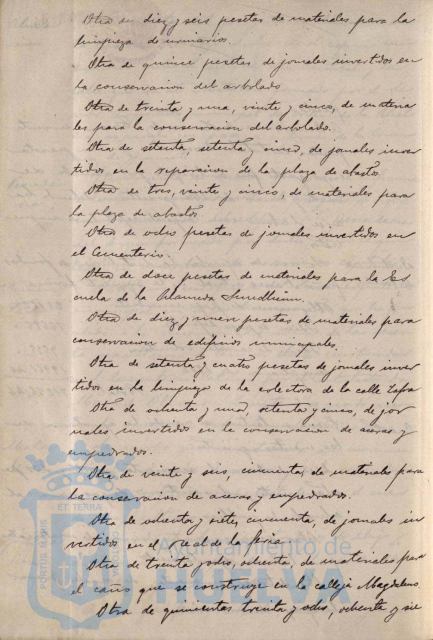 Otra de diez y seis pesetas de materiales para la
limpieza de urinarios.
Otra de quince pesetas de jornales invertidos en
la conservacion del arbolado
Otra de treinta y una, veinte y cinco, de materia
les para la conservacion del arbolado.
Otra de setenta, setenta y cinco, de jornales inver
tidos en la reparacion de la plaza de abastos.
Otra de tres, veinte y cinco, de materiales para
la plaza de abastos
Otra de ocho pesetas de jornales invertidos en
el Cementerio.
Otra de doce pesetas de materiales para la Es
cuela de la Alameda Sundheim.
Otra de diez y nueve pesetas de materiales para
conservacion de edificios municipales.
Otra de setenta y cuatro pesetas de jornales inver
tidos en la limpieza de la colectora de la calle Zafra
Otra de ochenta y una, setenta y cinco, de jor
nales invertidos en la conservacion de aceras y
empedrados.
Otra de veinte y seis, cincuenta, de materiales para
la conservacion de aceras y empedrados.
Otra de ochenta y siete, cincuenta, de jornales in
vertidos en el Real de la feria.
Otra de treinta y ocho, ochenta, de materiales para
el caño que se construye en la calleja Magdalena
Otra de quinientas treinta y ocho, ochenta y sie
ET TERRÆ
PORTUS MARIS
Ayuntamiento de
HUELVA